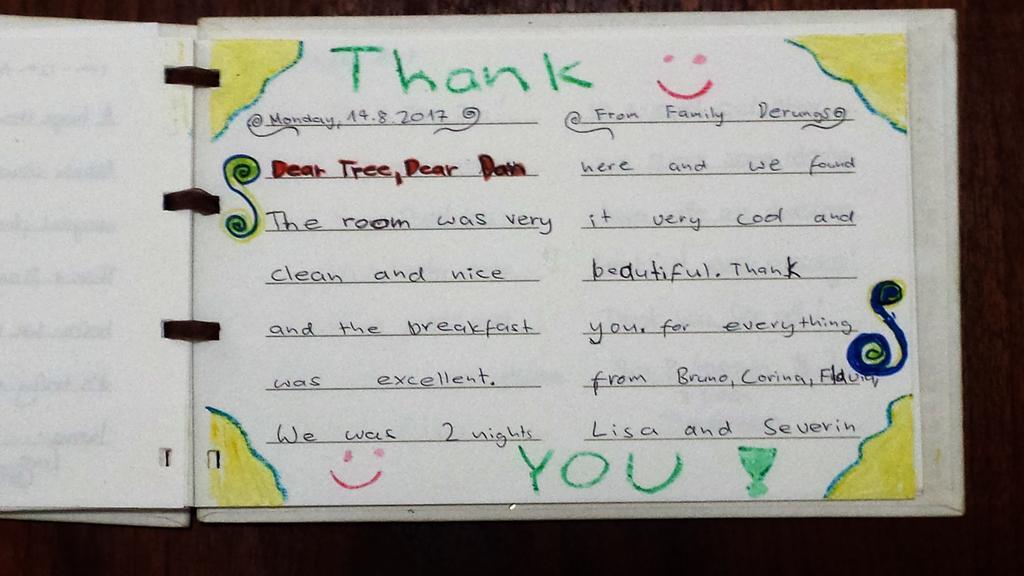 Thank
@ Monday, 14.8.2017 @
Dear Tree, Dear Dan
The room was very
clean and nice
and the breakfast
was excellent.
We was 2 nights
@ From Family Derungs@
here and we found
it very cool and
beautiful. Thank
you. for everything
from Bruno, Corina, Flavia,
Lisa and Severin
YOU !